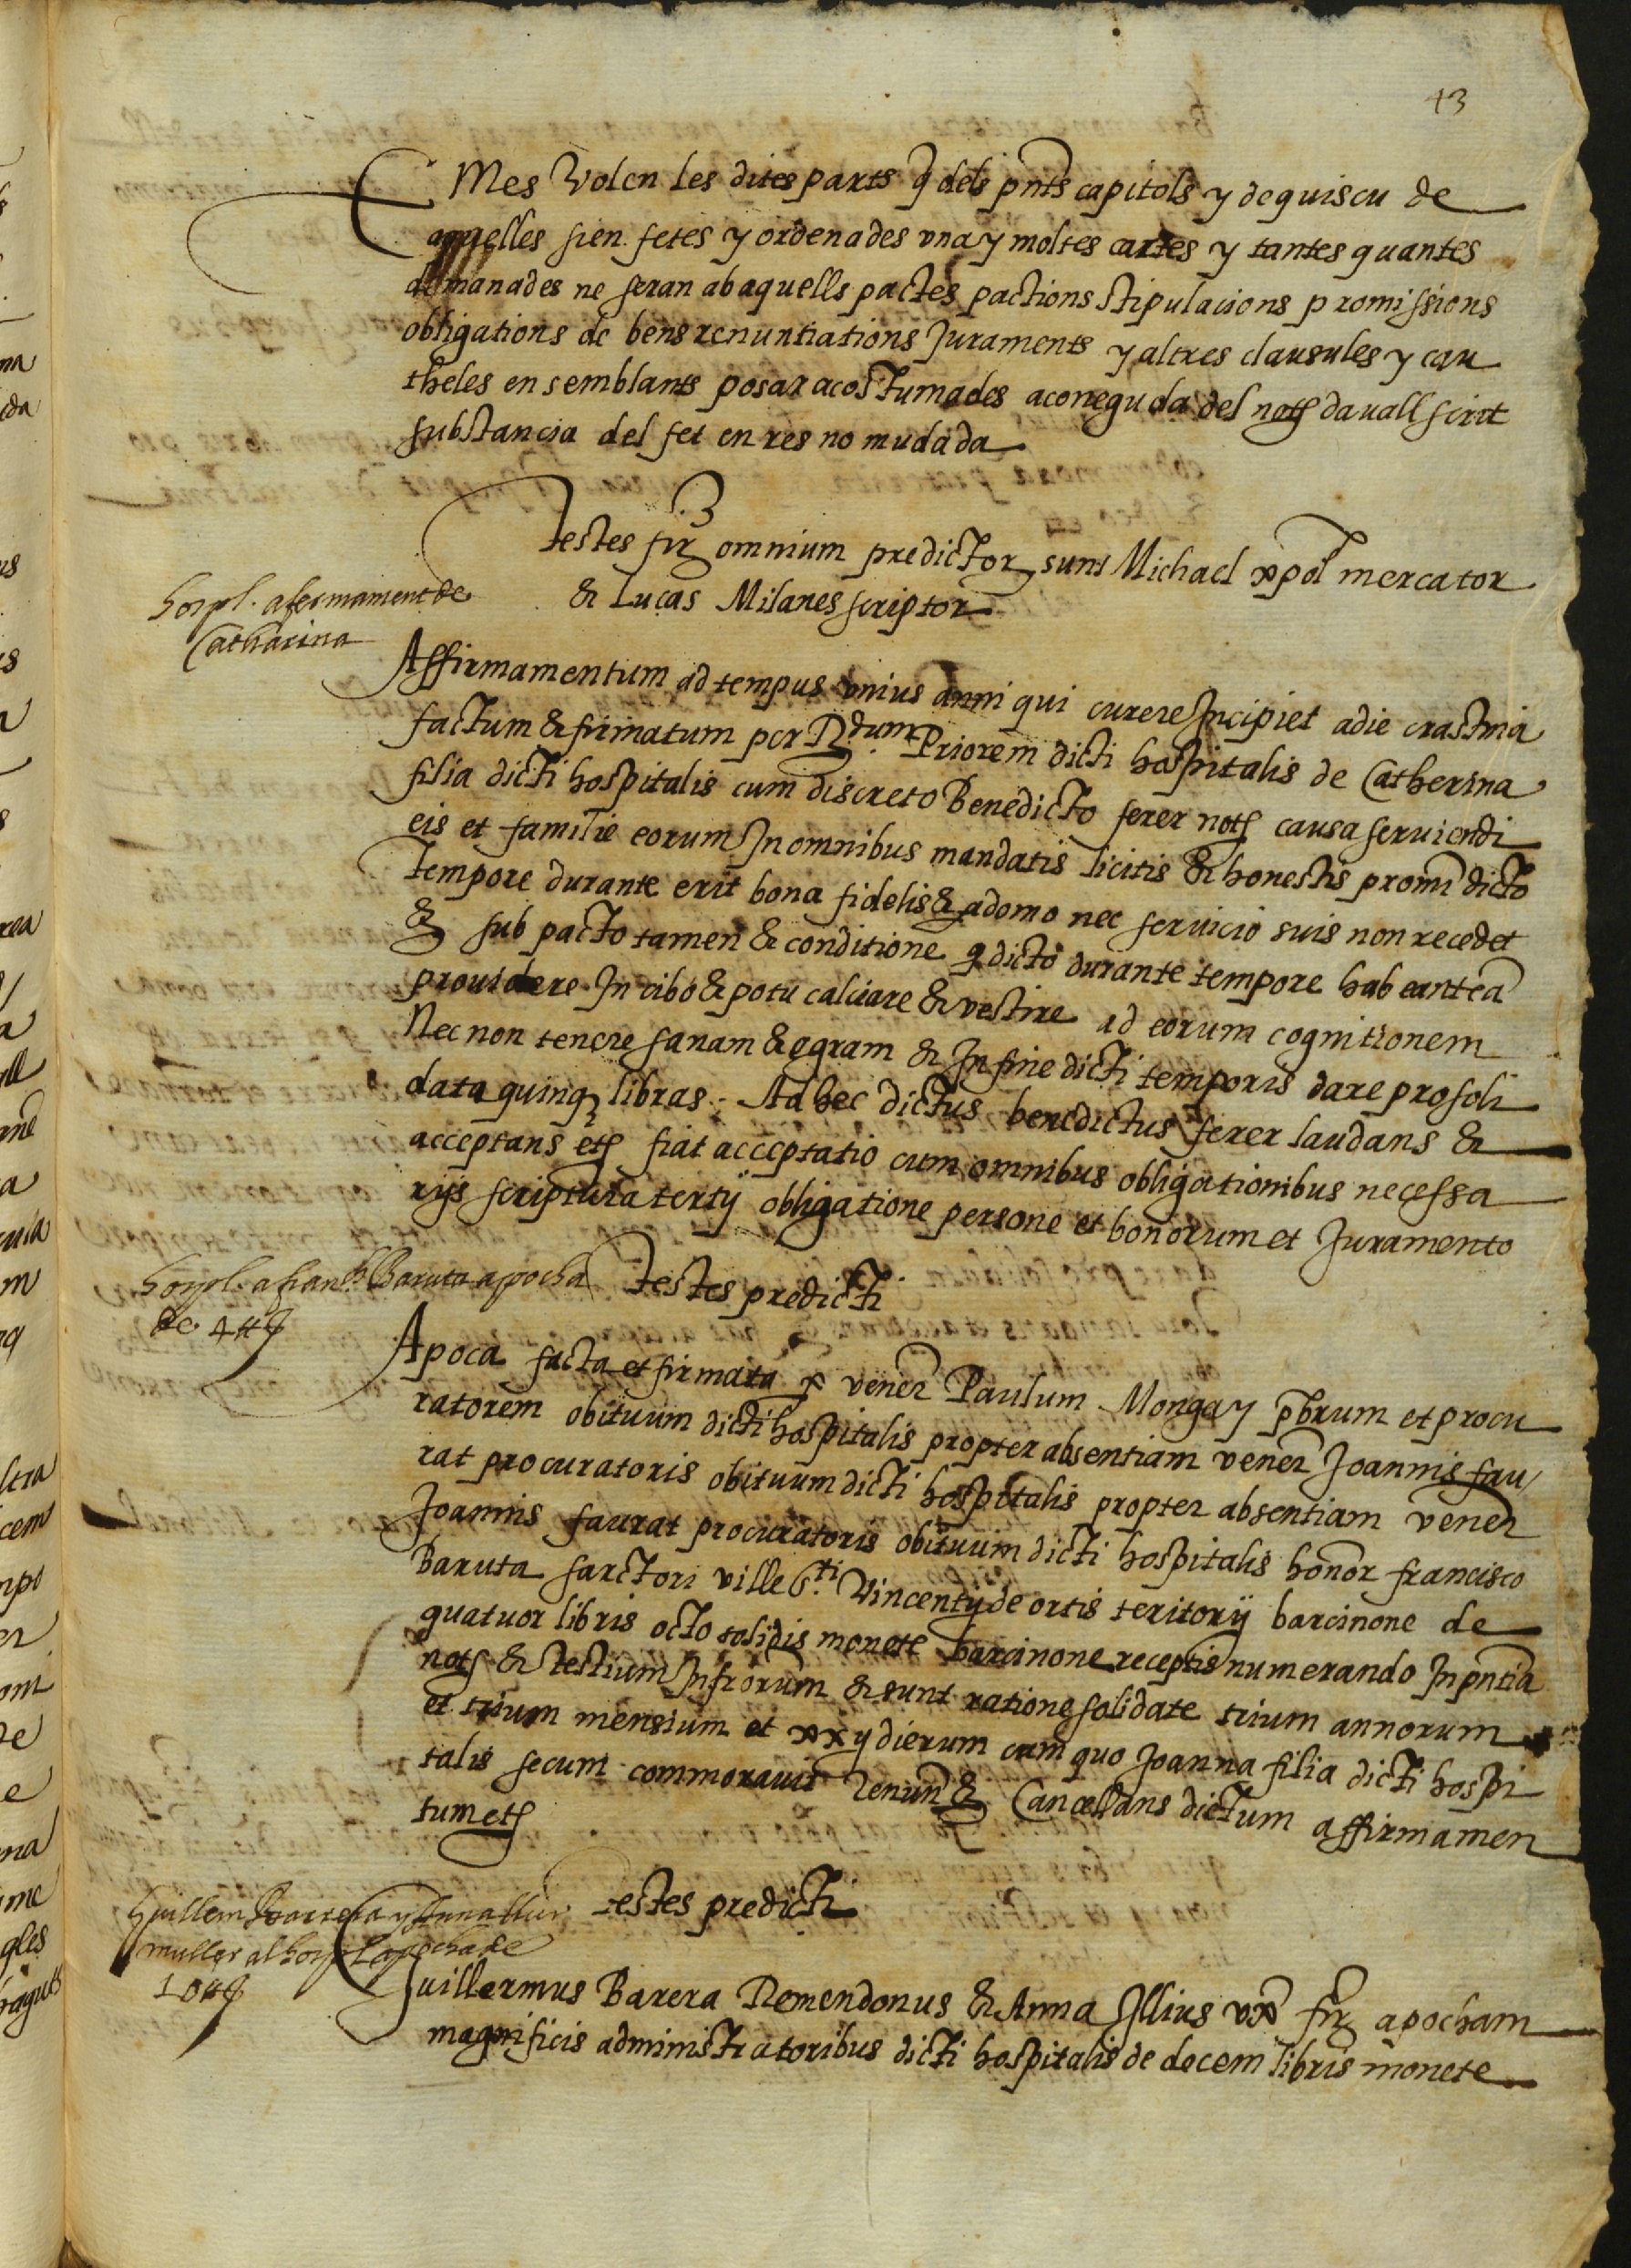 43
E Mes volen les dites parts q̃ dels pñts capitols y de quiscu de
aquelles sien fetes y ordenades vna y moltes cartes y tantes quantes
demanades ne seran ab aquells pactes pactions stipulacions promissions
obligations de bens renuntiations Juraments y altres clausules y cau
theles en semblants posar acostumades a coneguda del not̃ dauall scrit
substancia del fet en res no mudada
Testes fir̃ omnium predictor̃ sunt Michael xp̃ol mercator
& Lucas Milanes scriptor
hospl. afermament de
Catharina
Affirmamentum ad tempus vnius anni qui curere Incipiet a die crastina
factum & firmatum per R.dum Priorem dicti hospitalis de Catherina
filia dicti hospitalis cum discreto Benedicto ferer not̃ causa seruiendi
eis et familie eorum In omnibus mandatis licitis & honestis prom̃ dicto
tempore durante erit bona fidelis & a domo nec seruicio suis non recedet
& sub pacto tamen & conditione q̃ dicto durante tempore habeant eã
prouidere In cibo & potu calciare & vestire ad eorum cognitionem
Nec non tenere sanam & egram & In fine dicti temporis dare pro soli
data quinq̃ libras. Ad hec dictus benedictus ferer laudans &
acceptans et̃ fiat acceptatio cum omnibus obligationibus necessa
rijs scriptura tertij obligatione persone et bonorum et Juramento
Testes predicti
hospl. a franch Baruta apocha
de 4 ll 8
Apoca facta et firmata p̱ vener̃ Paulum Mongay p̃brum et procu
ratorem obituum dicti hospitalis propter absentiam vener̃ Joannis fau/
rat procuratoris obituum dicti hospitalis propter absentiam vener̃
Joannis faurat procuratoris obituum dicti hospitalis honor̃ francisco
Baruta sarctori ville S.ti Vincentij de ortis teritorij barcinone de
quatuor libris octo solidis monete barcinone receptis numerando In pñtia
not̃ & testium Infrorum & sunt ratione solidate trium annorum
et trium mensium et xxij dierum cum quo Joanna filia dicti hospi
talis secum commorauit Renun̄ & Cancellans dictum affirmamen
tum et̃
testes predicti
Guillem Barrera y Anna
muller al hospl apocha de
10 ll 8
Guillermus Barera Remendonus & Anna Illius vx̃ fir̃ apocham
magnificis administratoribus dicti hospitalis de decem libris monete